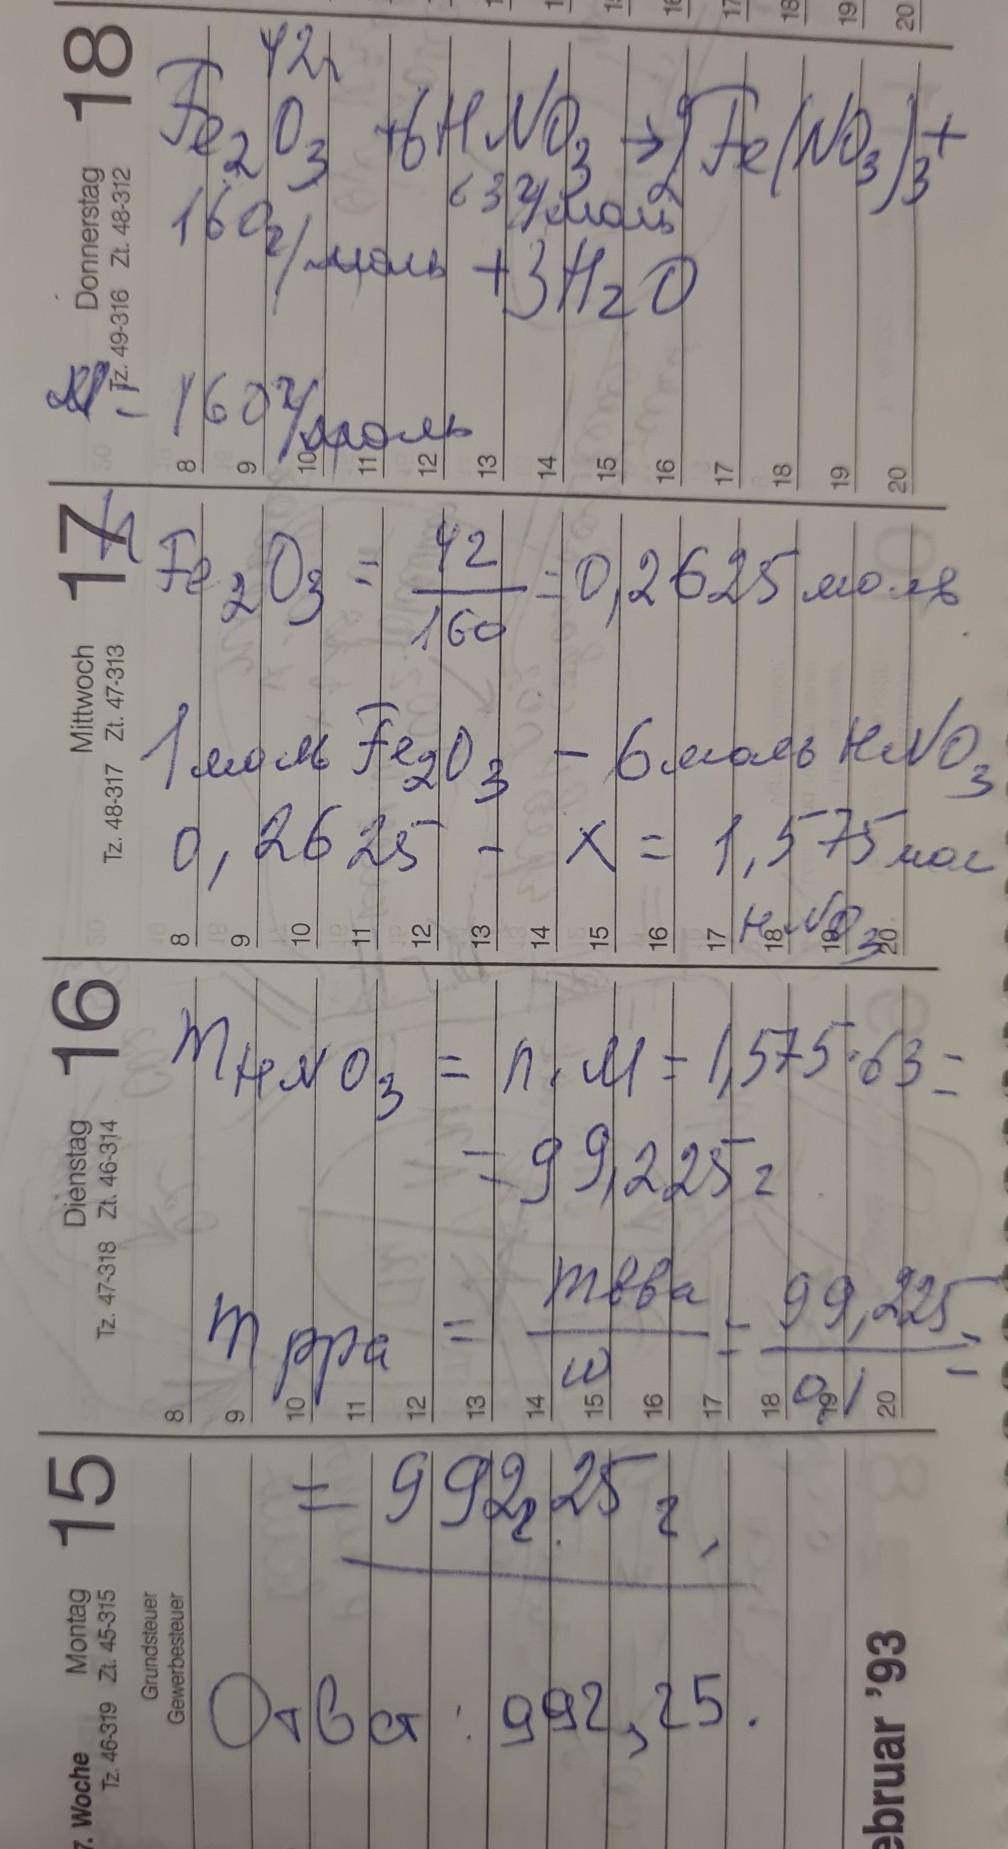 18
Donnerstag
Tz. 49-316 Zt. 48-312
42г
Fe2O3 + 6HNO3 → 2Fe(NO3)3 +
160г/моль 63г/моль
+ 3H2O
M: 160г/моль
8 9 10 11 12 13 14 15 16 17 18 19 20
17
Mittwoch
Tz. 48-317 Zt. 47-313
n Fe2O3 = 42/160 = 0,2625 моль
1 моль Fe2O3 - 6 моль HNO3
0,2625 - x = 1,575 мол
HNO3
8 9 10 11 12 13 14 15 16 17 18 19 20
16
Dienstag
Tz. 47-318 Zt. 46-314
mHNO3 = n · M = 1,575 · 63 =
= 99,225 г
m рра = mвва/w = 99,225/0,1 =
8 9 10 11 12 13 14 15 16 17 18 19 20
15
Montag
Tz. 46-319 Zt. 45-315
7. Woche
Grundsteuer
Gewerbesteuer
= 992,25 г.
Ответ: 992,25.
ebruar '93